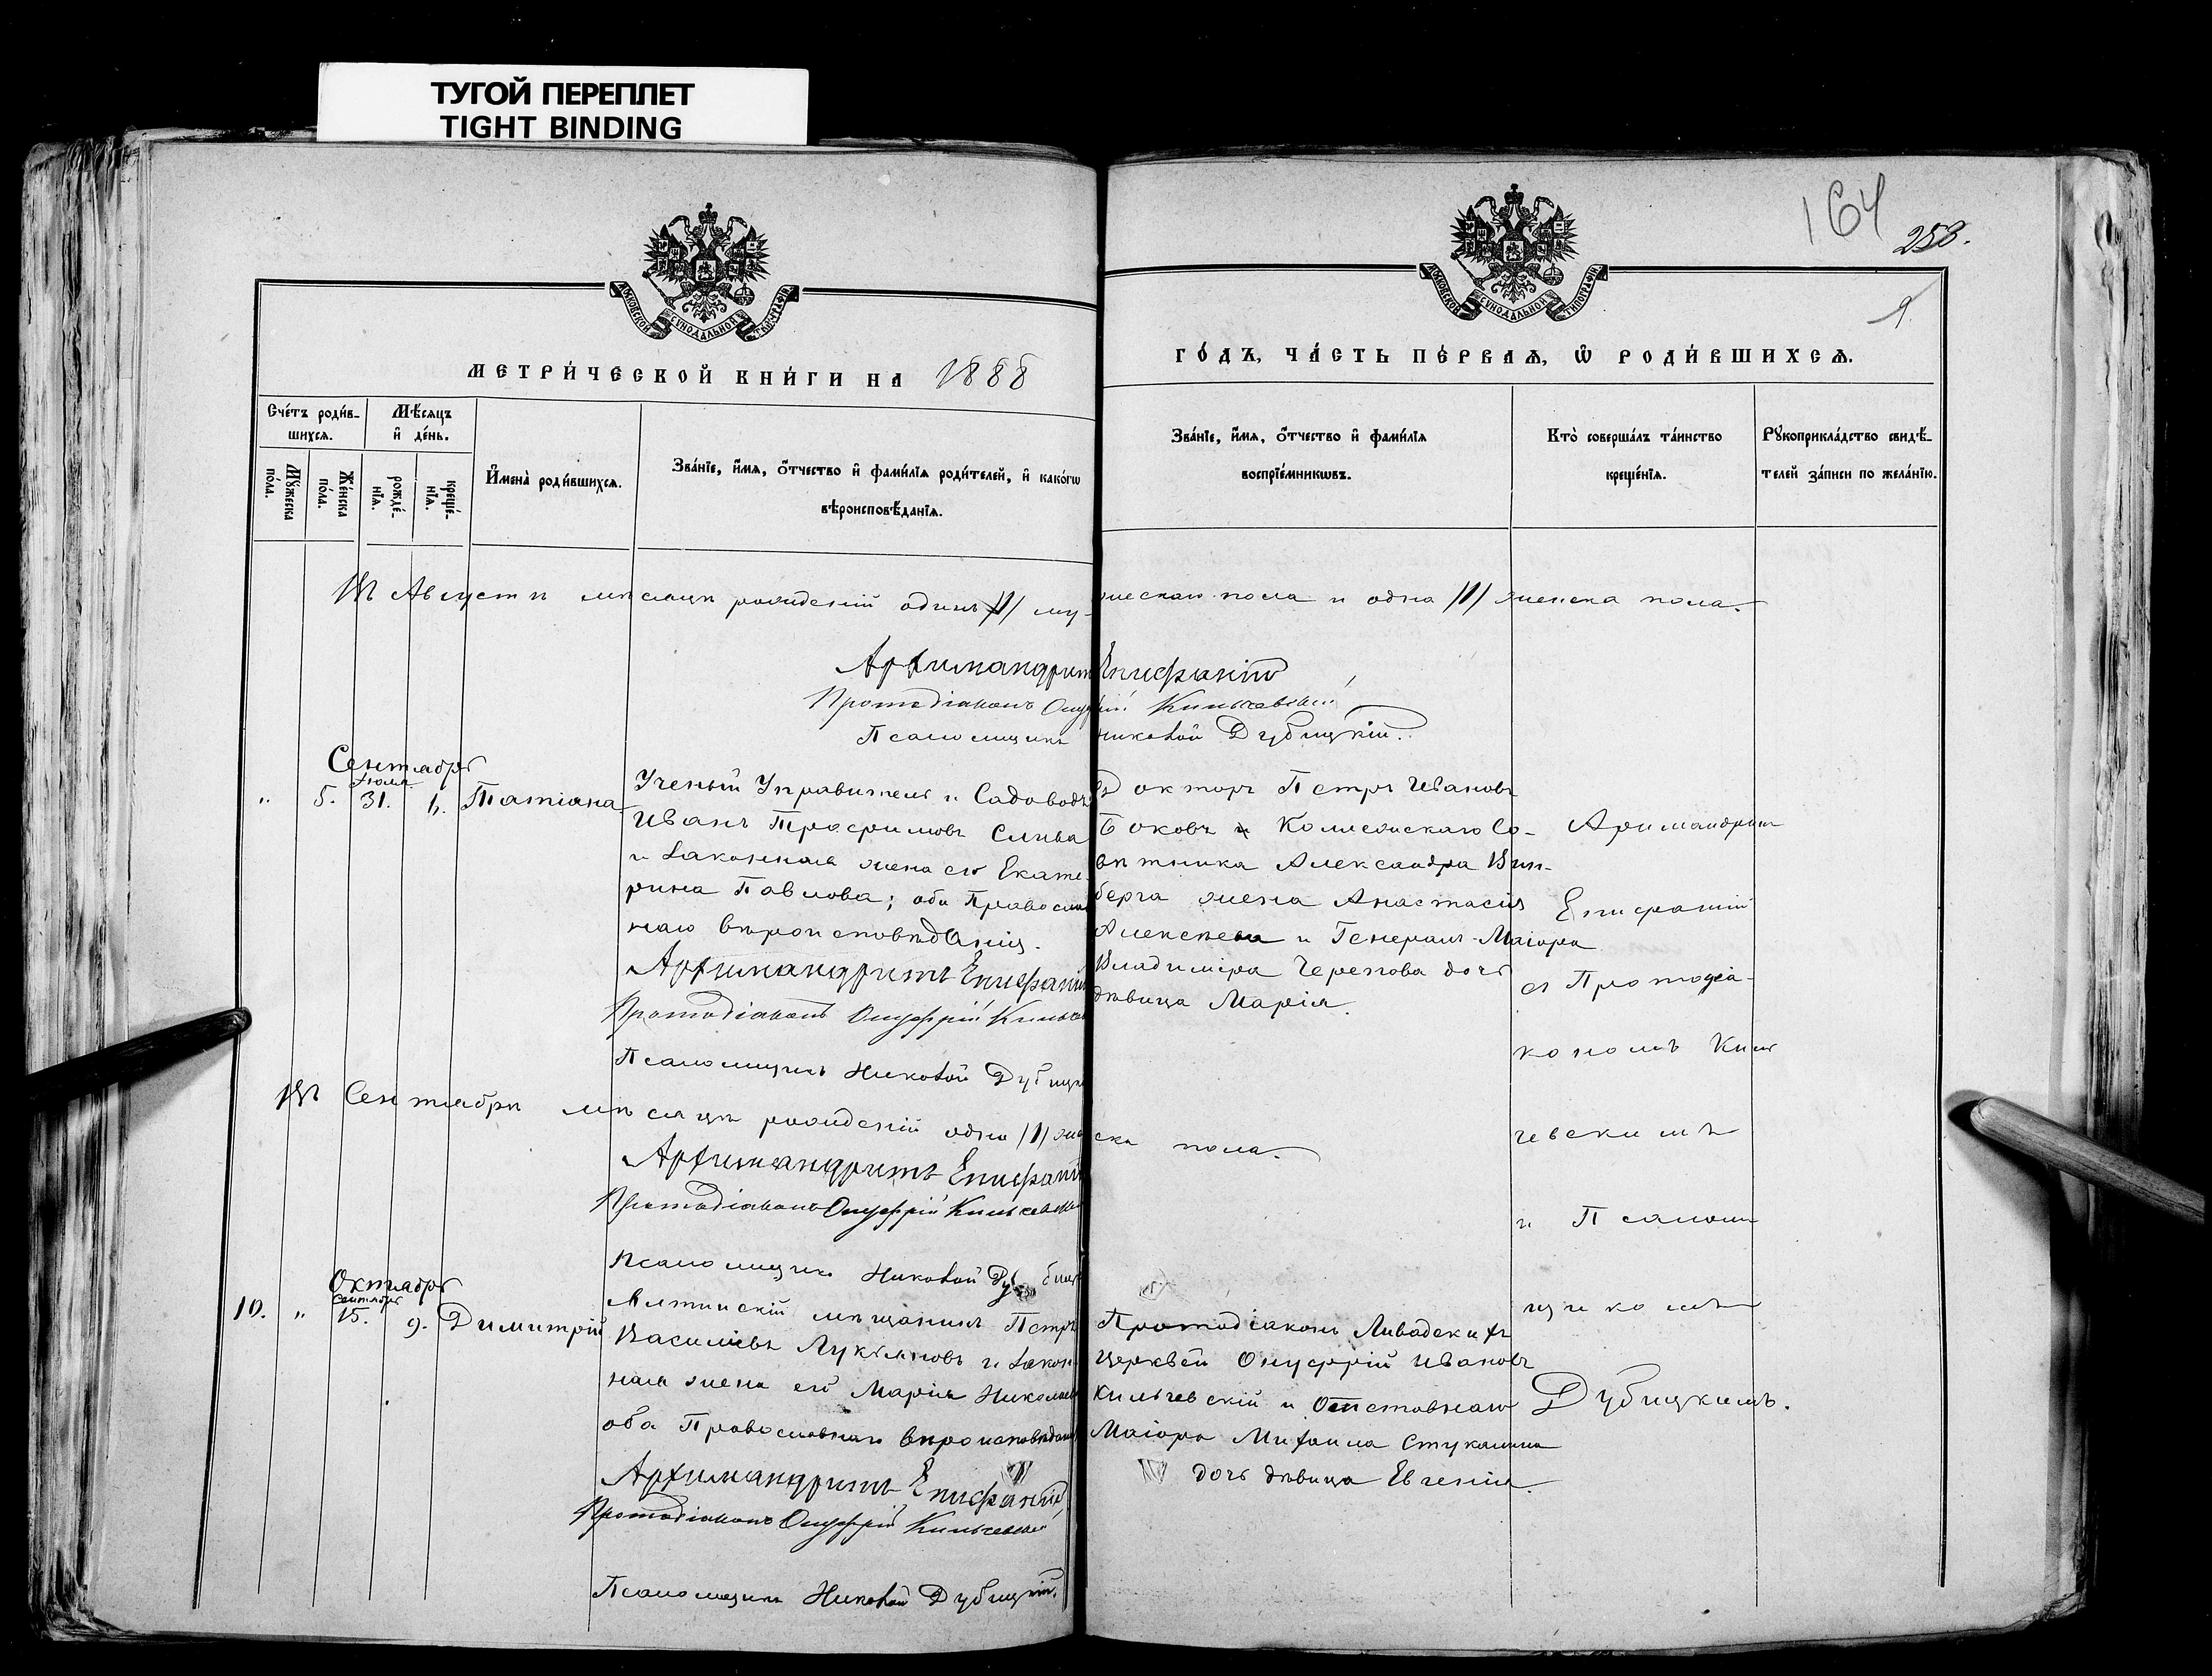 ТУГОЙ ПЕРЕПЛЕТ
TIGHT BINDING
164
258.
МОСКОВСКОЙ СУНОДАЛЬНОЙ ТИПОГРАФІИ
МОСКОВСКОЙ СУНОДАЛЬНОЙ ТИПОГРАФІИ
МЕТРИ́ЧЕСКОЙ КНИ́ГИ НА 1888
ГО́ДЪ, ЧА́СТЬ ПЕ́РВАѦ, Ѡ҆ РОДИ́ВШИХСѦ.
Сче́тъ роди́в-
шихсѧ.
Мѣ́сѧцъ
и҆ де́нь.
Мꙋ́жеска
по́ла.
Же́нска
по́ла.
рожде́-
нїѧ.
креще́-
нїѧ.
И҆мена̀ роди́вшихсѧ.
Зва́нїе, и҆́мѧ, ѻ҆́тчество и҆ фами́лїѧ роди́телей, и҆ како́гѡ
вѣроисповѣ́данїѧ.
Зва́нїе, и҆́мѧ, ѻ҆́тчество и҆ фами́лїѧ
воспрїе́мникѡвъ.
Кто̀ соверша́лъ та́инство
креще́нїѧ.
Рꙋкоприкла́дство свидѣ́-
телей за́писи по жела́нїю.
Въ Августѣ мѣсяцѣ рожденій одинъ /1/ му-
жескаго пола и одна /1/ женска пола.
Архимандритъ Епифаній
Протодіаконъ Онуфрій Кильчевскій
Псаломщикъ Николай Дубицкій.
Сентябрь
Іюля
" 5. 31. Татіана
Ученый Управитель и Садоводъ
Иванъ Трофимовъ Слива
и законная жена его Екате-
рина Павлова; оба Православ
наго вѣроисповѣданія.
Архимандритъ Епифаній
Протодіаконъ Онуфрій Кильчев
Псаломщикъ Николай Дубицк
Докторъ Петръ Ивановъ
Боковъ и Коллежскаго Со-
вѣтника Александра Вин-
берга жена Анастасія
Алексѣева и Генералъ-Маіора
Владиміра Черепова дочь
дѣвица Марія.
Архимандритъ
Епифаній
съ Протодіа-
кономъ Киль
чевскимъ
и Псалом
щикомъ
Дубицкимъ.
Въ Сентябрѣ мѣсяцѣ рожденій одна /1/ жен
ска пола.
Архимандритъ Епифаній
Протодіаконъ Онуфрій Кильчевскій
Псаломщикъ Николай Дубицк
Октябрь
Сентября
10. " 15. 9. Димитрій
Ялтинскій мѣщанинъ Петръ
Василіевъ Лукьяновъ и закон-
ная жена его Марія Николаев
оба Православнаго вѣроисповѣдан
Архимандритъ Епифаній
Протодіаконъ Онуфрій Кильчевскій
Псаломщикъ Николай Дубицкій.
Протодіаконъ Ливадскихъ
церквей Онуфрій Ивановъ
Кильчевскій и Отставнаго
Маіора Михаила Стукалина
дочь дѣвица Евгенія.